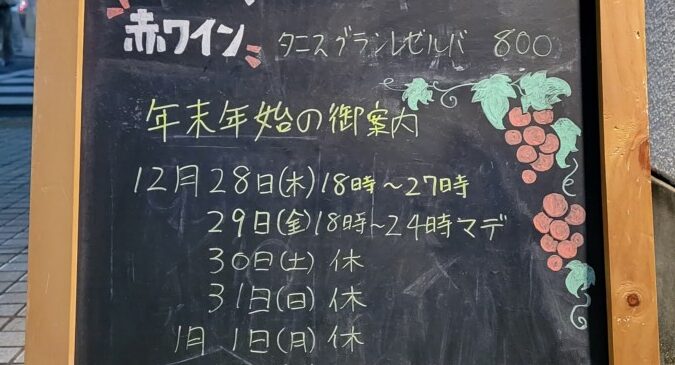 赤ワイン タニスグランレゼルバ 800
年末年始の御案内
12月28日(木)18時～27時
29日(金)18時～24時マデ
30日(土)休
31日(日)休
1月1日(月)休